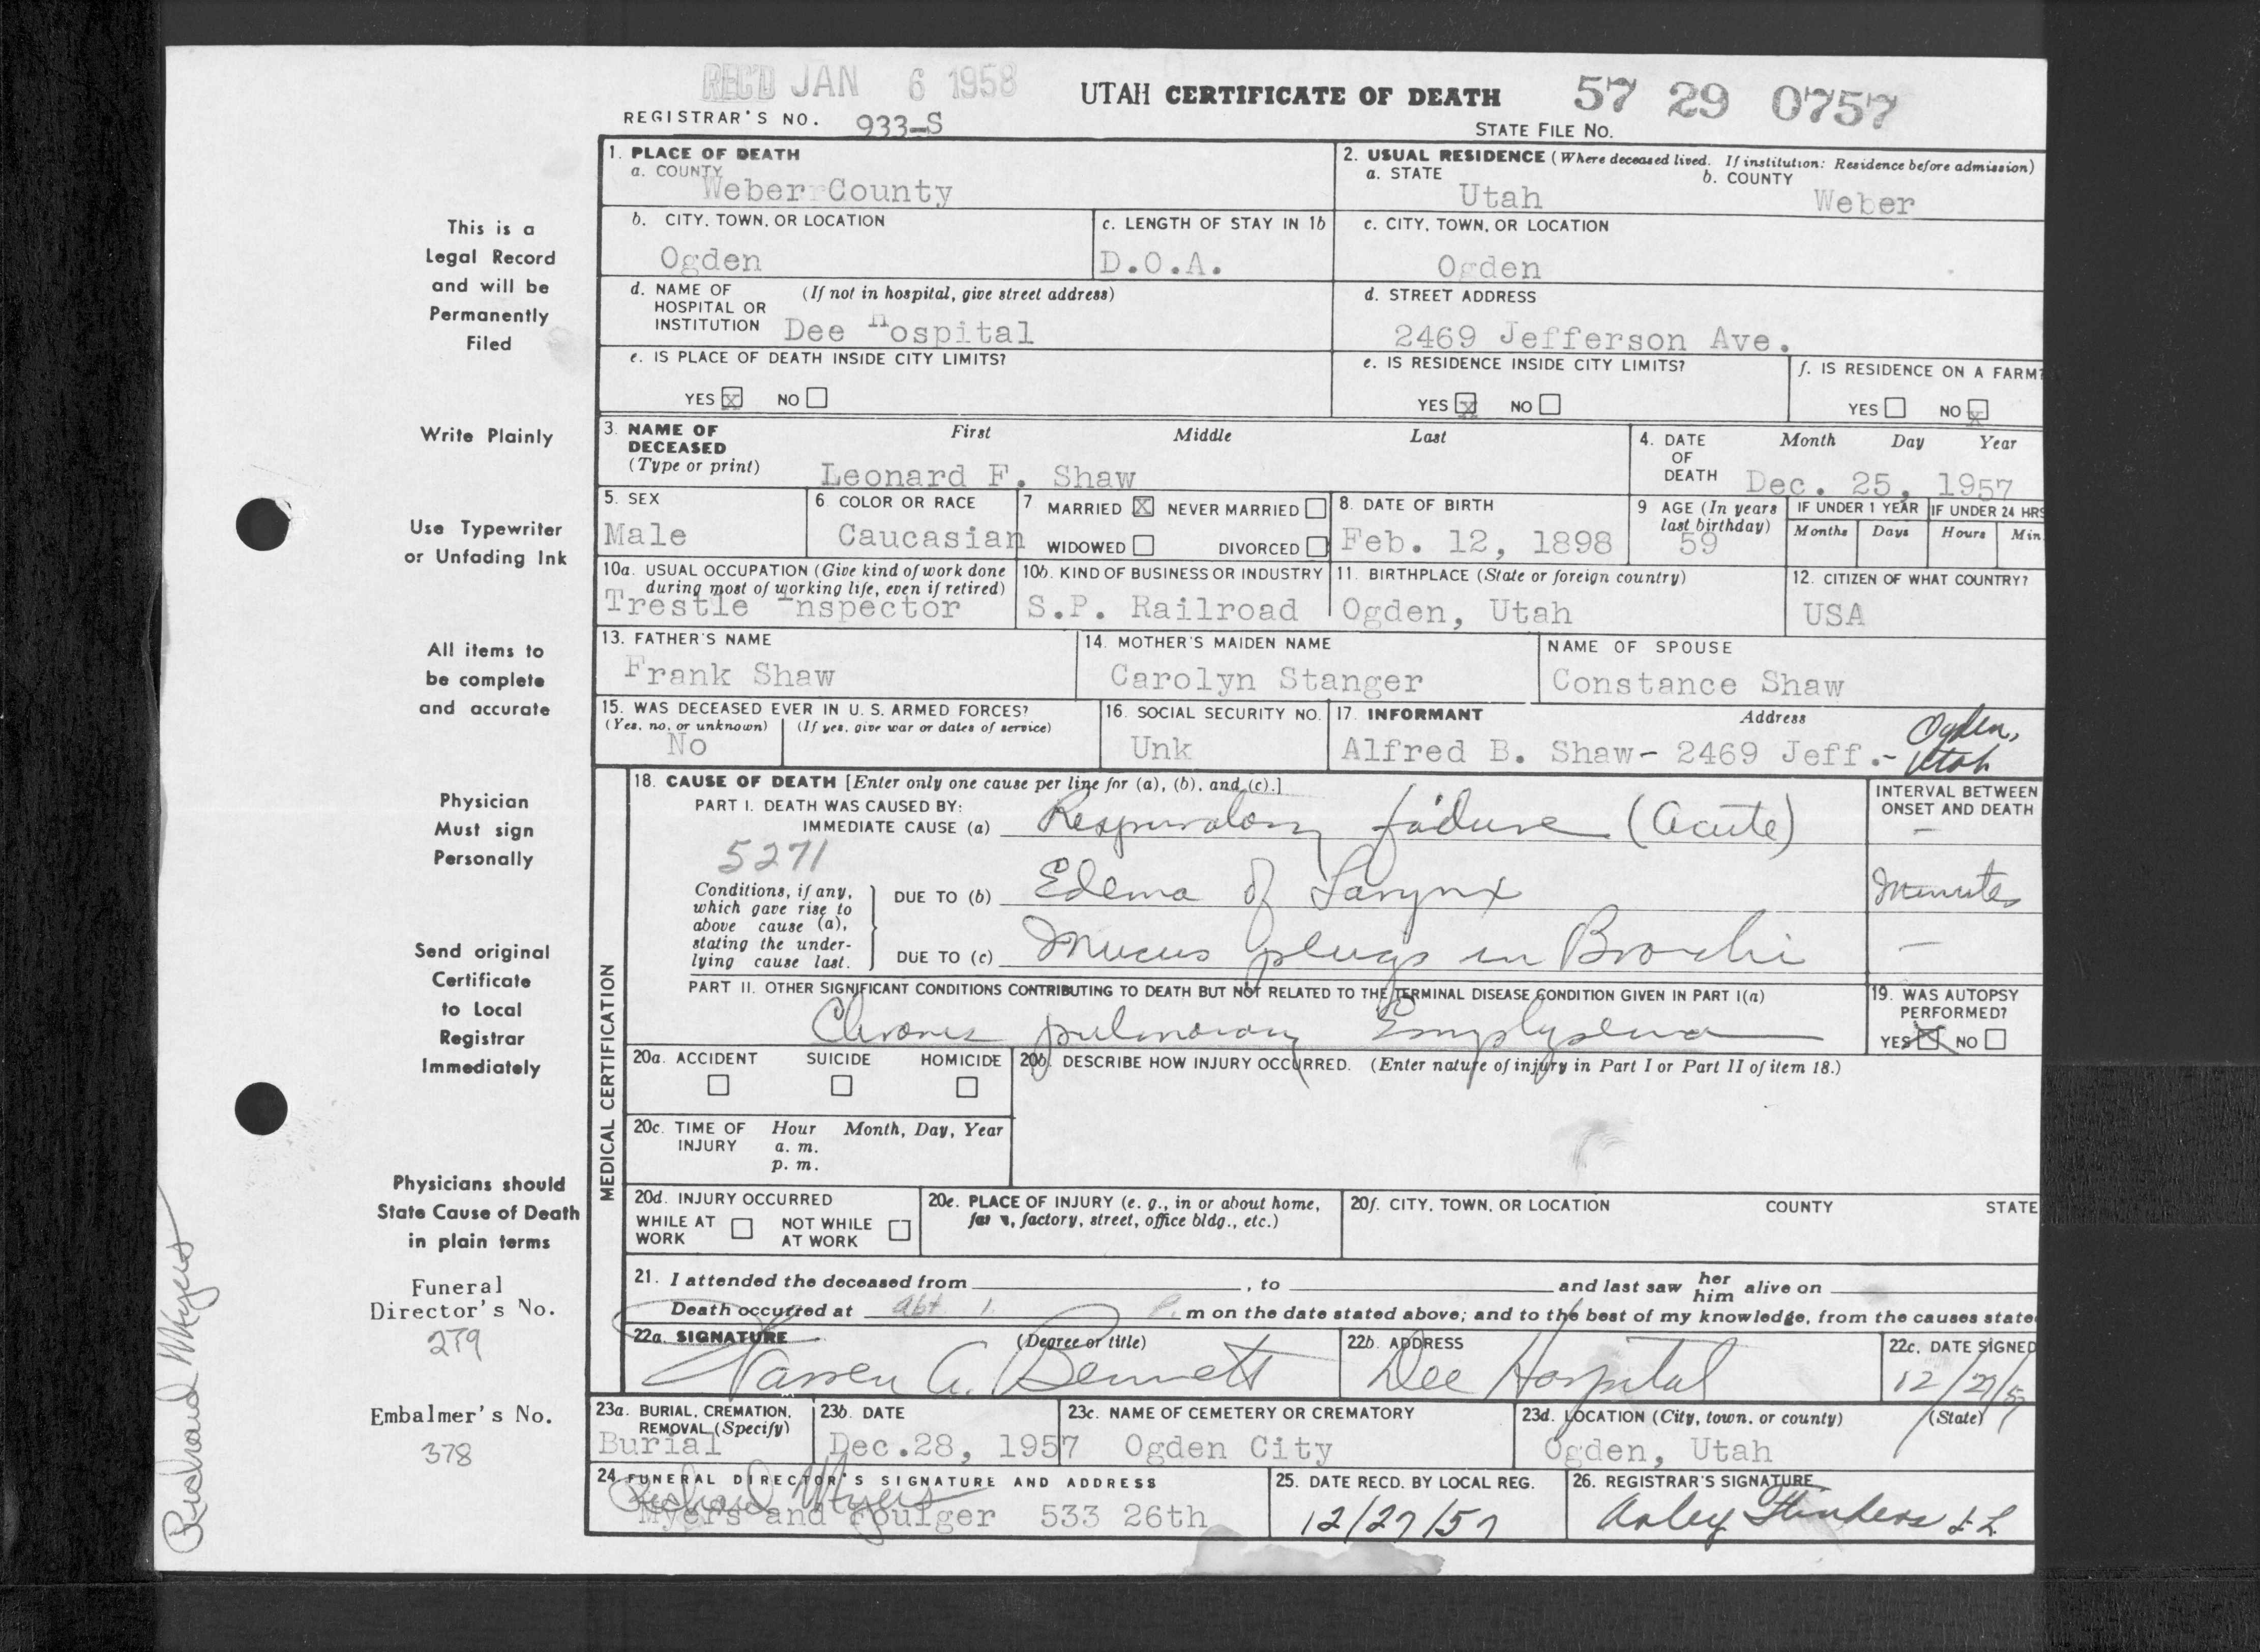 REC'D JAN 6 1958
UTAH CERTIFICATE OF DEATH 57 29 0757
REGISTRAR'S NO. 933-S
STATE FILE NO.
1. PLACE OF DEATH
a. COUNTY
Weber County
2. USUAL RESIDENCE (Where deceased lived. If institution: Residence before admission)
a. STATE b. COUNTY
Utah Weber
b. CITY, TOWN, OR LOCATION
Ogden
c. LENGTH OF STAY IN 1b
D.O.A.
c. CITY, TOWN, OR LOCATION
Ogden
d. NAME OF (If not in hospital, give street address)
HOSPITAL OR
INSTITUTION Dee Hospital
d. STREET ADDRESS
2469 Jefferson Ave.
e. IS PLACE OF DEATH INSIDE CITY LIMITS?
YES X NO
e. IS RESIDENCE INSIDE CITY LIMITS?
YES X NO
f. IS RESIDENCE ON A FARM?
YES NO X
3. NAME OF First Middle Last
DECEASED
(Type or print) Leonard F. Shaw
4. DATE Month Day Year
OF
DEATH Dec. 25, 1957
5. SEX
Male
6. COLOR OR RACE
Caucasian
7 MARRIED X NEVER MARRIED
WIDOWED DIVORCED
8. DATE OF BIRTH
Feb. 12, 1898
9 AGE (In years
last birthday)
59
IF UNDER 1 YEAR IF UNDER 24 HRS
Months Days Hours Min
10a. USUAL OCCUPATION (Give kind of work done
during most of working life, even if retired)
Trestle Inspector
10b. KIND OF BUSINESS OR INDUSTRY
S.P. Railroad
11. BIRTHPLACE (State or foreign country)
Ogden, Utah
12. CITIZEN OF WHAT COUNTRY?
USA
13. FATHER'S NAME
Frank Shaw
14. MOTHER'S MAIDEN NAME
Carolyn Stanger
NAME OF SPOUSE
Constance Shaw
15. WAS DECEASED EVER IN U. S. ARMED FORCES?
(Yes, no, or unknown) (If yes, give war or dates of service)
No
16. SOCIAL SECURITY NO.
Unk
17. INFORMANT Address
Alfred B. Shaw- 2469 Jeff.- Ogden,
Utah
MEDICAL CERTIFICATION
18. CAUSE OF DEATH [Enter only one cause per line for (a), (b), and (c).]
PART I. DEATH WAS CAUSED BY:
IMMEDIATE CAUSE (a) Respiratory failure (Acute)
INTERVAL BETWEEN
ONSET AND DEATH
—
5271
Conditions, if any,
which gave rise to
above cause (a),
stating the under-
lying cause last.
DUE TO (b) Edema of Larynx Minutes
DUE TO (c) Mucus plugs in Bronchi —
PART II. OTHER SIGNIFICANT CONDITIONS CONTRIBUTING TO DEATH BUT NOT RELATED TO THE TERMINAL DISEASE CONDITION GIVEN IN PART I(a)
Chronic pulmonary Emphysema
19. WAS AUTOPSY
PERFORMED?
YES X NO
20a. ACCIDENT SUICIDE HOMICIDE
20b. DESCRIBE HOW INJURY OCCURRED. (Enter nature of injury in Part I or Part II of item 18.)
20c. TIME OF Hour Month, Day, Year
INJURY a. m.
p. m.
20d. INJURY OCCURRED
WHILE AT NOT WHILE
WORK AT WORK
20e. PLACE OF INJURY (e. g., in or about home,
factory, street, office bldg., etc.)
20f. CITY, TOWN, OR LOCATION COUNTY STATE
21. I attended the deceased from , to and last saw her
him alive on
Death occurred at abt 1 P. m on the date stated above; and to the best of my knowledge, from the causes state
22a. SIGNATURE (Degree or title)
Warren A. Bennett
22b. ADDRESS
Dee Hospital
22c. DATE SIGNED
12/27/57
23a. BURIAL, CREMATION,
REMOVAL (Specify)
Burial
23b. DATE
Dec.28, 1957
23c. NAME OF CEMETERY OR CREMATORY
Ogden City
23d. LOCATION (City, town, or county) (State)
Ogden, Utah
24 FUNERAL DIRECTOR'S SIGNATURE AND ADDRESS
Richard Myers
Myers and Foulger 533 26th
25. DATE RECD. BY LOCAL REG.
12/27/57
26. REGISTRAR'S SIGNATURE
Arley Flinders
This is a
Legal Record
and will be
Permanently
Filed
Write Plainly
Use Typewriter
or Unfading Ink
All items to
be complete
and accurate
Physician
Must sign
Personally
Send original
Certificate
to Local
Registrar
Immediately
Physicians should
State Cause of Death
in plain terms
Funeral
Director's No.
279
Embalmer's No.
378
Richard Myers